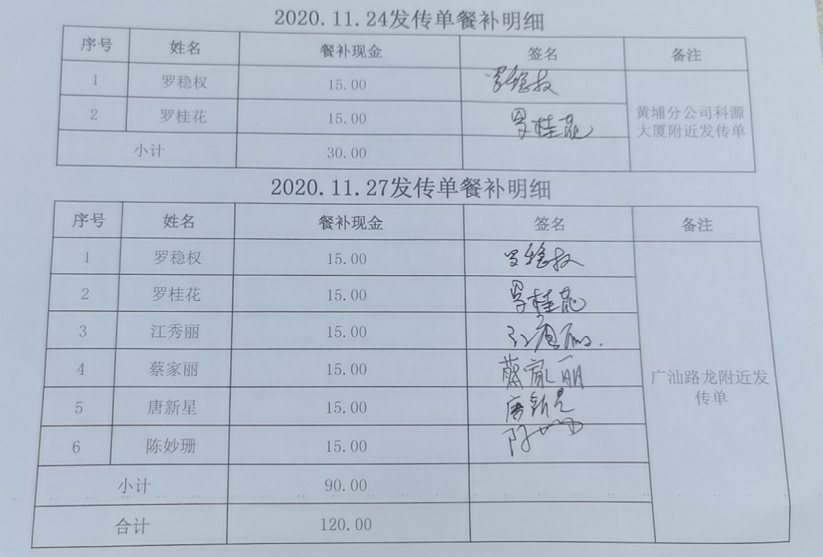 2020.11.24发传单餐补明细
序号 姓名 餐补现金 签名 备注
1 罗稳权 15.00 罗稳权
2 罗桂花 15.00 罗桂花
黄埔分公司科源
大厦附近发传单
小计 30.00
2020.11.27发传单餐补明细
序号 姓名 餐补现金 签名 备注
1 罗稳权 15.00 罗稳权
2 罗桂花 15.00 罗桂花
3 江秀丽 15.00
4 蔡家丽 15.00 蔡家丽
5 唐新星 15.00 唐新星
6 陈妙珊 15.00
广汕路龙附近发
传单
小计 90.00
合计 120.00